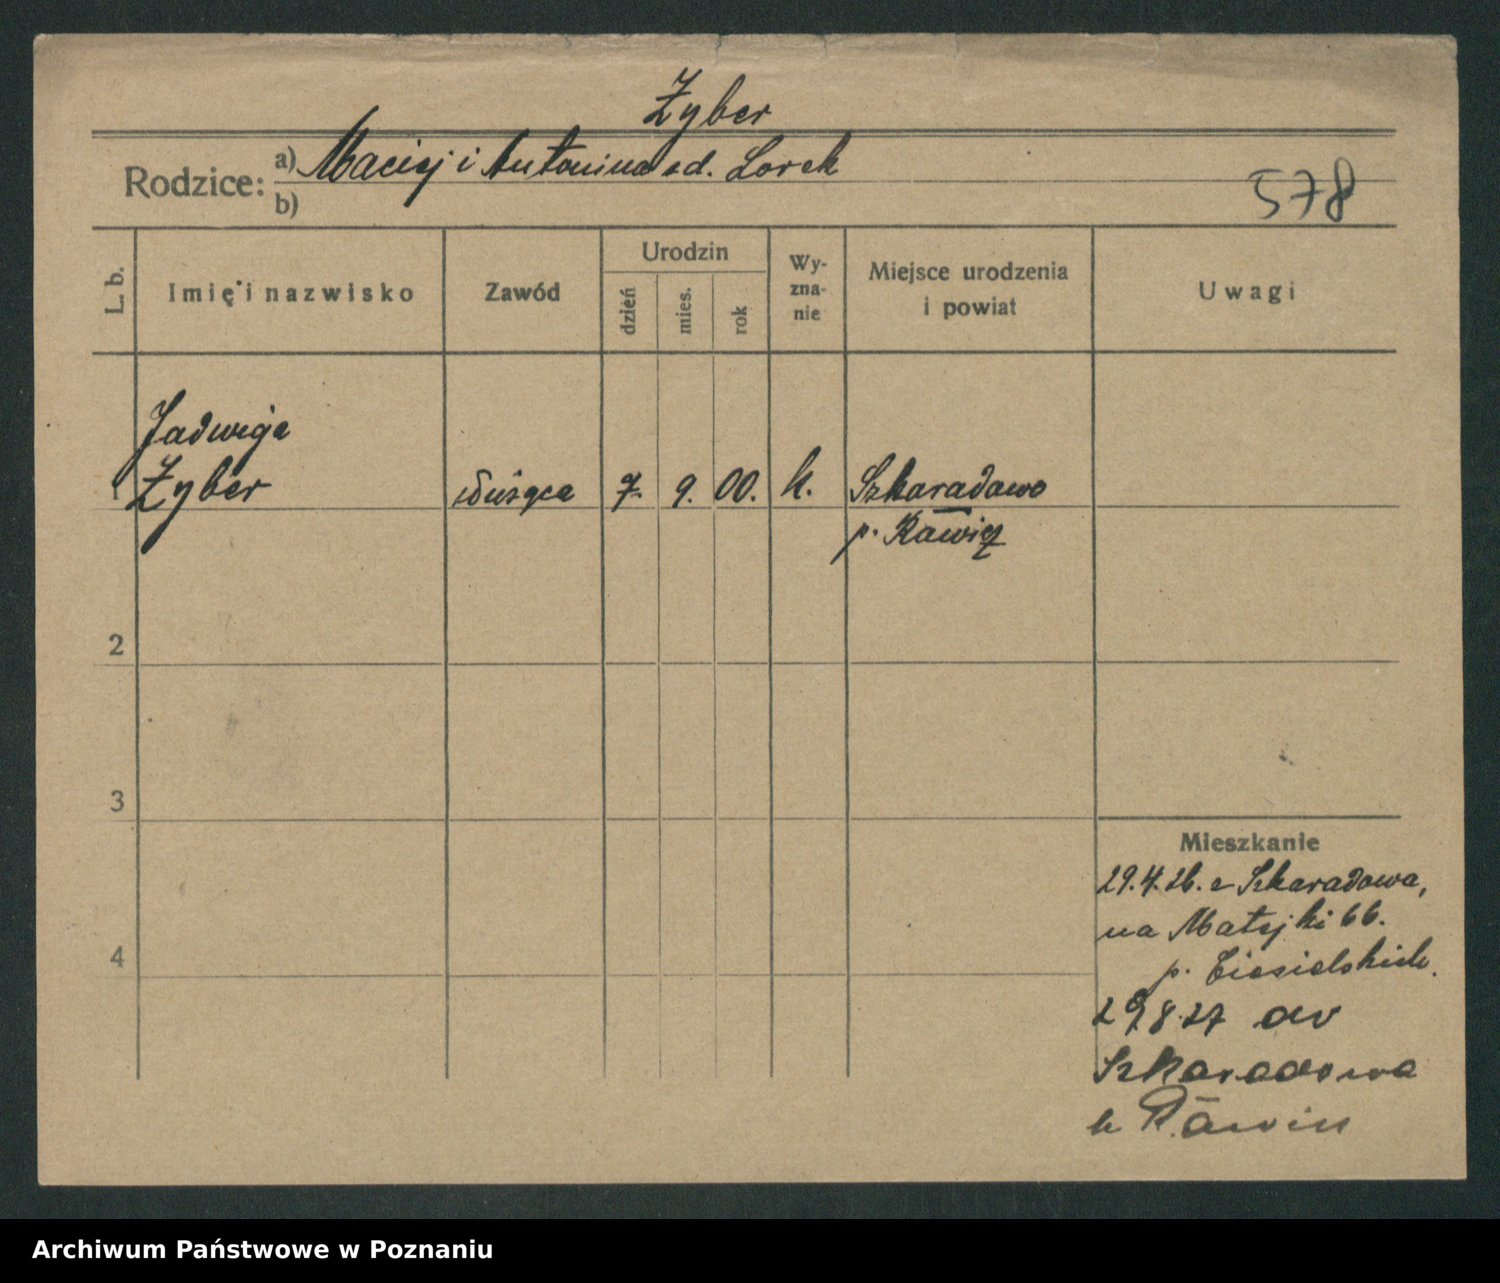 Żyber
Rodzice: a) Maciej i Antonina zd. Lorek
b)
578
L. b.
Imię i nazwisko
Zawód
Urodzin
dzień
mies.
rok
Wy-
zna-
nie
Miejsce urodzenia
i powiat
Uwagi
Jadwiga
1 Żyber służąca 7. 9. 00. k. Szkaradowo
p. Rawicz
2
3
4
Mieszkanie
29.4.26. z Szkaradowa,
na Matejki 66.
p. Ciesielskich.
29 8 27 do
Szkaradowa
Rawicz